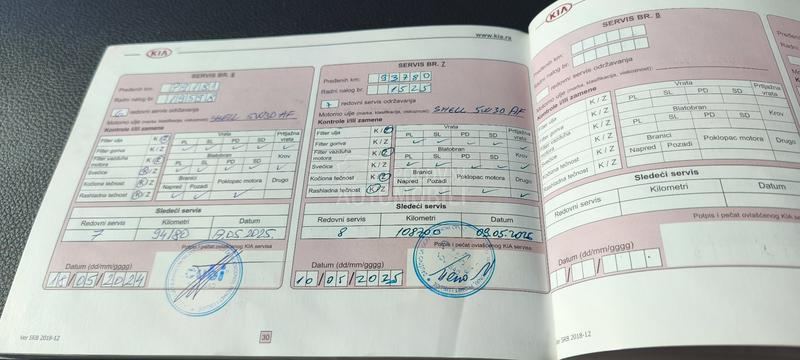 KIA
www.kia.rs
SERVIS BR. 6
Pređenih km:
Radni nalog br.
redovni servis održavanja
Motorno ulje (marka, klasifikacija, viskoznost): SHELL 5W30 AF
Kontrole i/ili zamene
Filter ulja K / Z
Filter goriva K / Z
Filter vazduha motora K / Z
Svećice K / Z
Kočiona tečnost K / Z
Rashladna tečnost K / Z
Vrata
PL SL PD SD
Blatobran
PL SL PD SD
Branici
Napred Pozadi
Poklopac motora
Prtljažna vrata
Krov
Drugo
Sledeći servis
Redovni servis Kilometri Datum
7
Potpis i pečat ovlašćenog KIA servisa
Datum (dd/mm/gggg)
/05/2024
Ver SRB 2018-12
30
SERVIS BR. 7
Pređenih km: 93780
Radni nalog br. 1525
7 redovni servis održavanja
Motorno ulje (marka, klasifikacija, viskoznost): SHELL 5W30 AF
Kontrole i/ili zamene
Filter ulja K / Z
Filter goriva K / Z
Filter vazduha motora K / Z
Svećice K / Z
Kočiona tečnost K / Z
Rashladna tečnost K / Z
Vrata
PL SL PD SD
Blatobran
PL SL PD SD
Branici
Napred Pozadi
Poklopac motora
Prtljažna vrata
Krov
Drugo
Sledeći servis
Redovni servis Kilometri Datum
8 09.05.2026
Potpis i pečat ovlašćenog KIA servisa
Datum (dd/mm/gggg)
10/05/2025
KIA
SERVIS BR. 8
Pređenih km:
Radni nalog br.
redovni servis održavanja
Motorno ulje (marka, klasifikacija, viskoznost):
Kontrole i/ili zamene
Filter ulja K / Z
Filter goriva K / Z
Filter vazduha motora K / Z
Svećice K / Z
Kočiona tečnost K / Z
Rashladna tečnost K / Z
Vrata
PL SL PD SD
Blatobran
PL SL PD SD
Branici
Napred Pozadi
Poklopac motora
Prtljažna vrata
Krov
Drugo
Sledeći servis
Redovni servis Kilometri Datum
Potpis i pečat ovlašćenog KIA servisa
Datum (dd/mm/gggg)
Ver SRB 2018-12